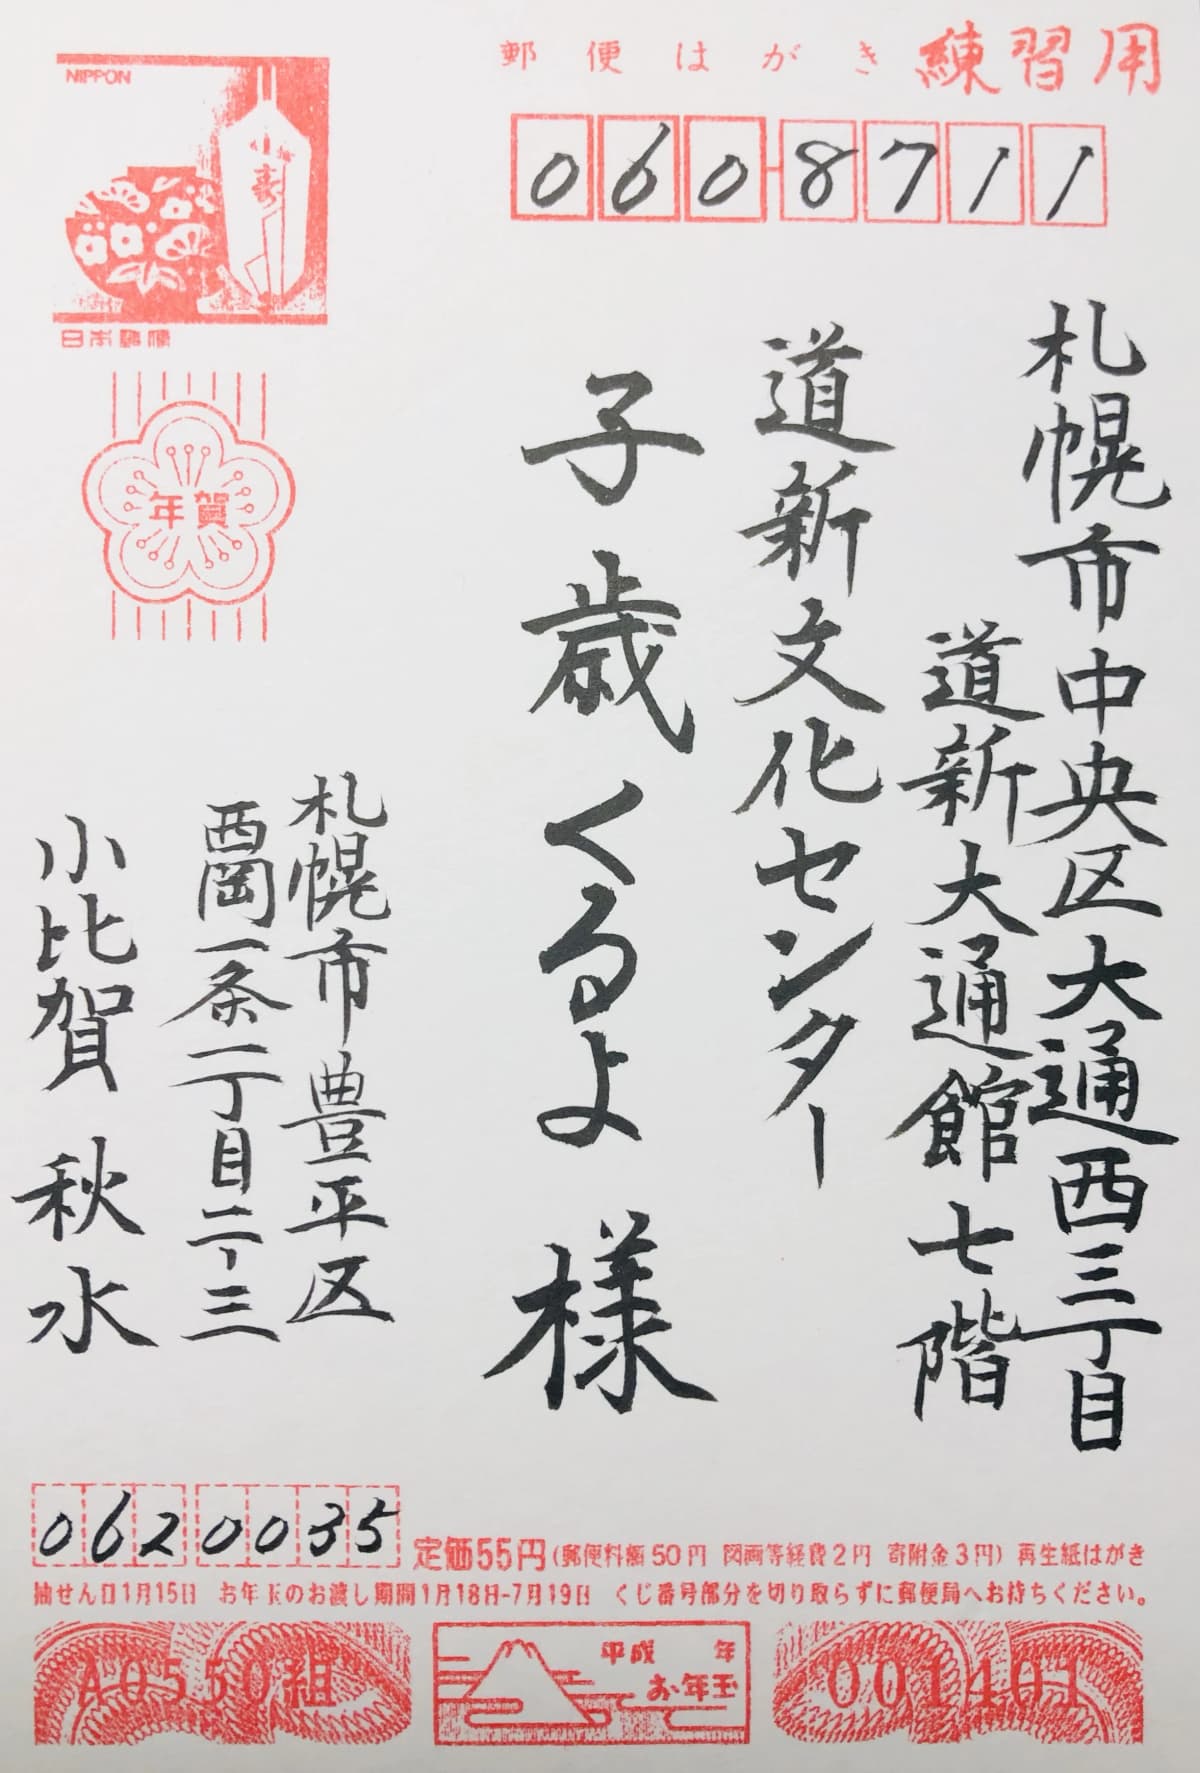 郵便はがき 練習用
NIPPON
日本郵便
年賀
060-8711
札幌市中央区大通西三丁目
道新大通館七階
道新文化センター
子歳くるよ 様
札幌市豊平区
西岡一条一丁目二-三
小比賀 秋水
0620035
定価55円(郵便料額50円 図画等経費2円 寄附金3円) 再生紙はがき
抽せん日1月15日 お年玉のお渡し期間1月18日-7月19日 くじ番号部分を切り取らずに郵便局へお持ちください。
A0550組
平成 年
お年玉
001401